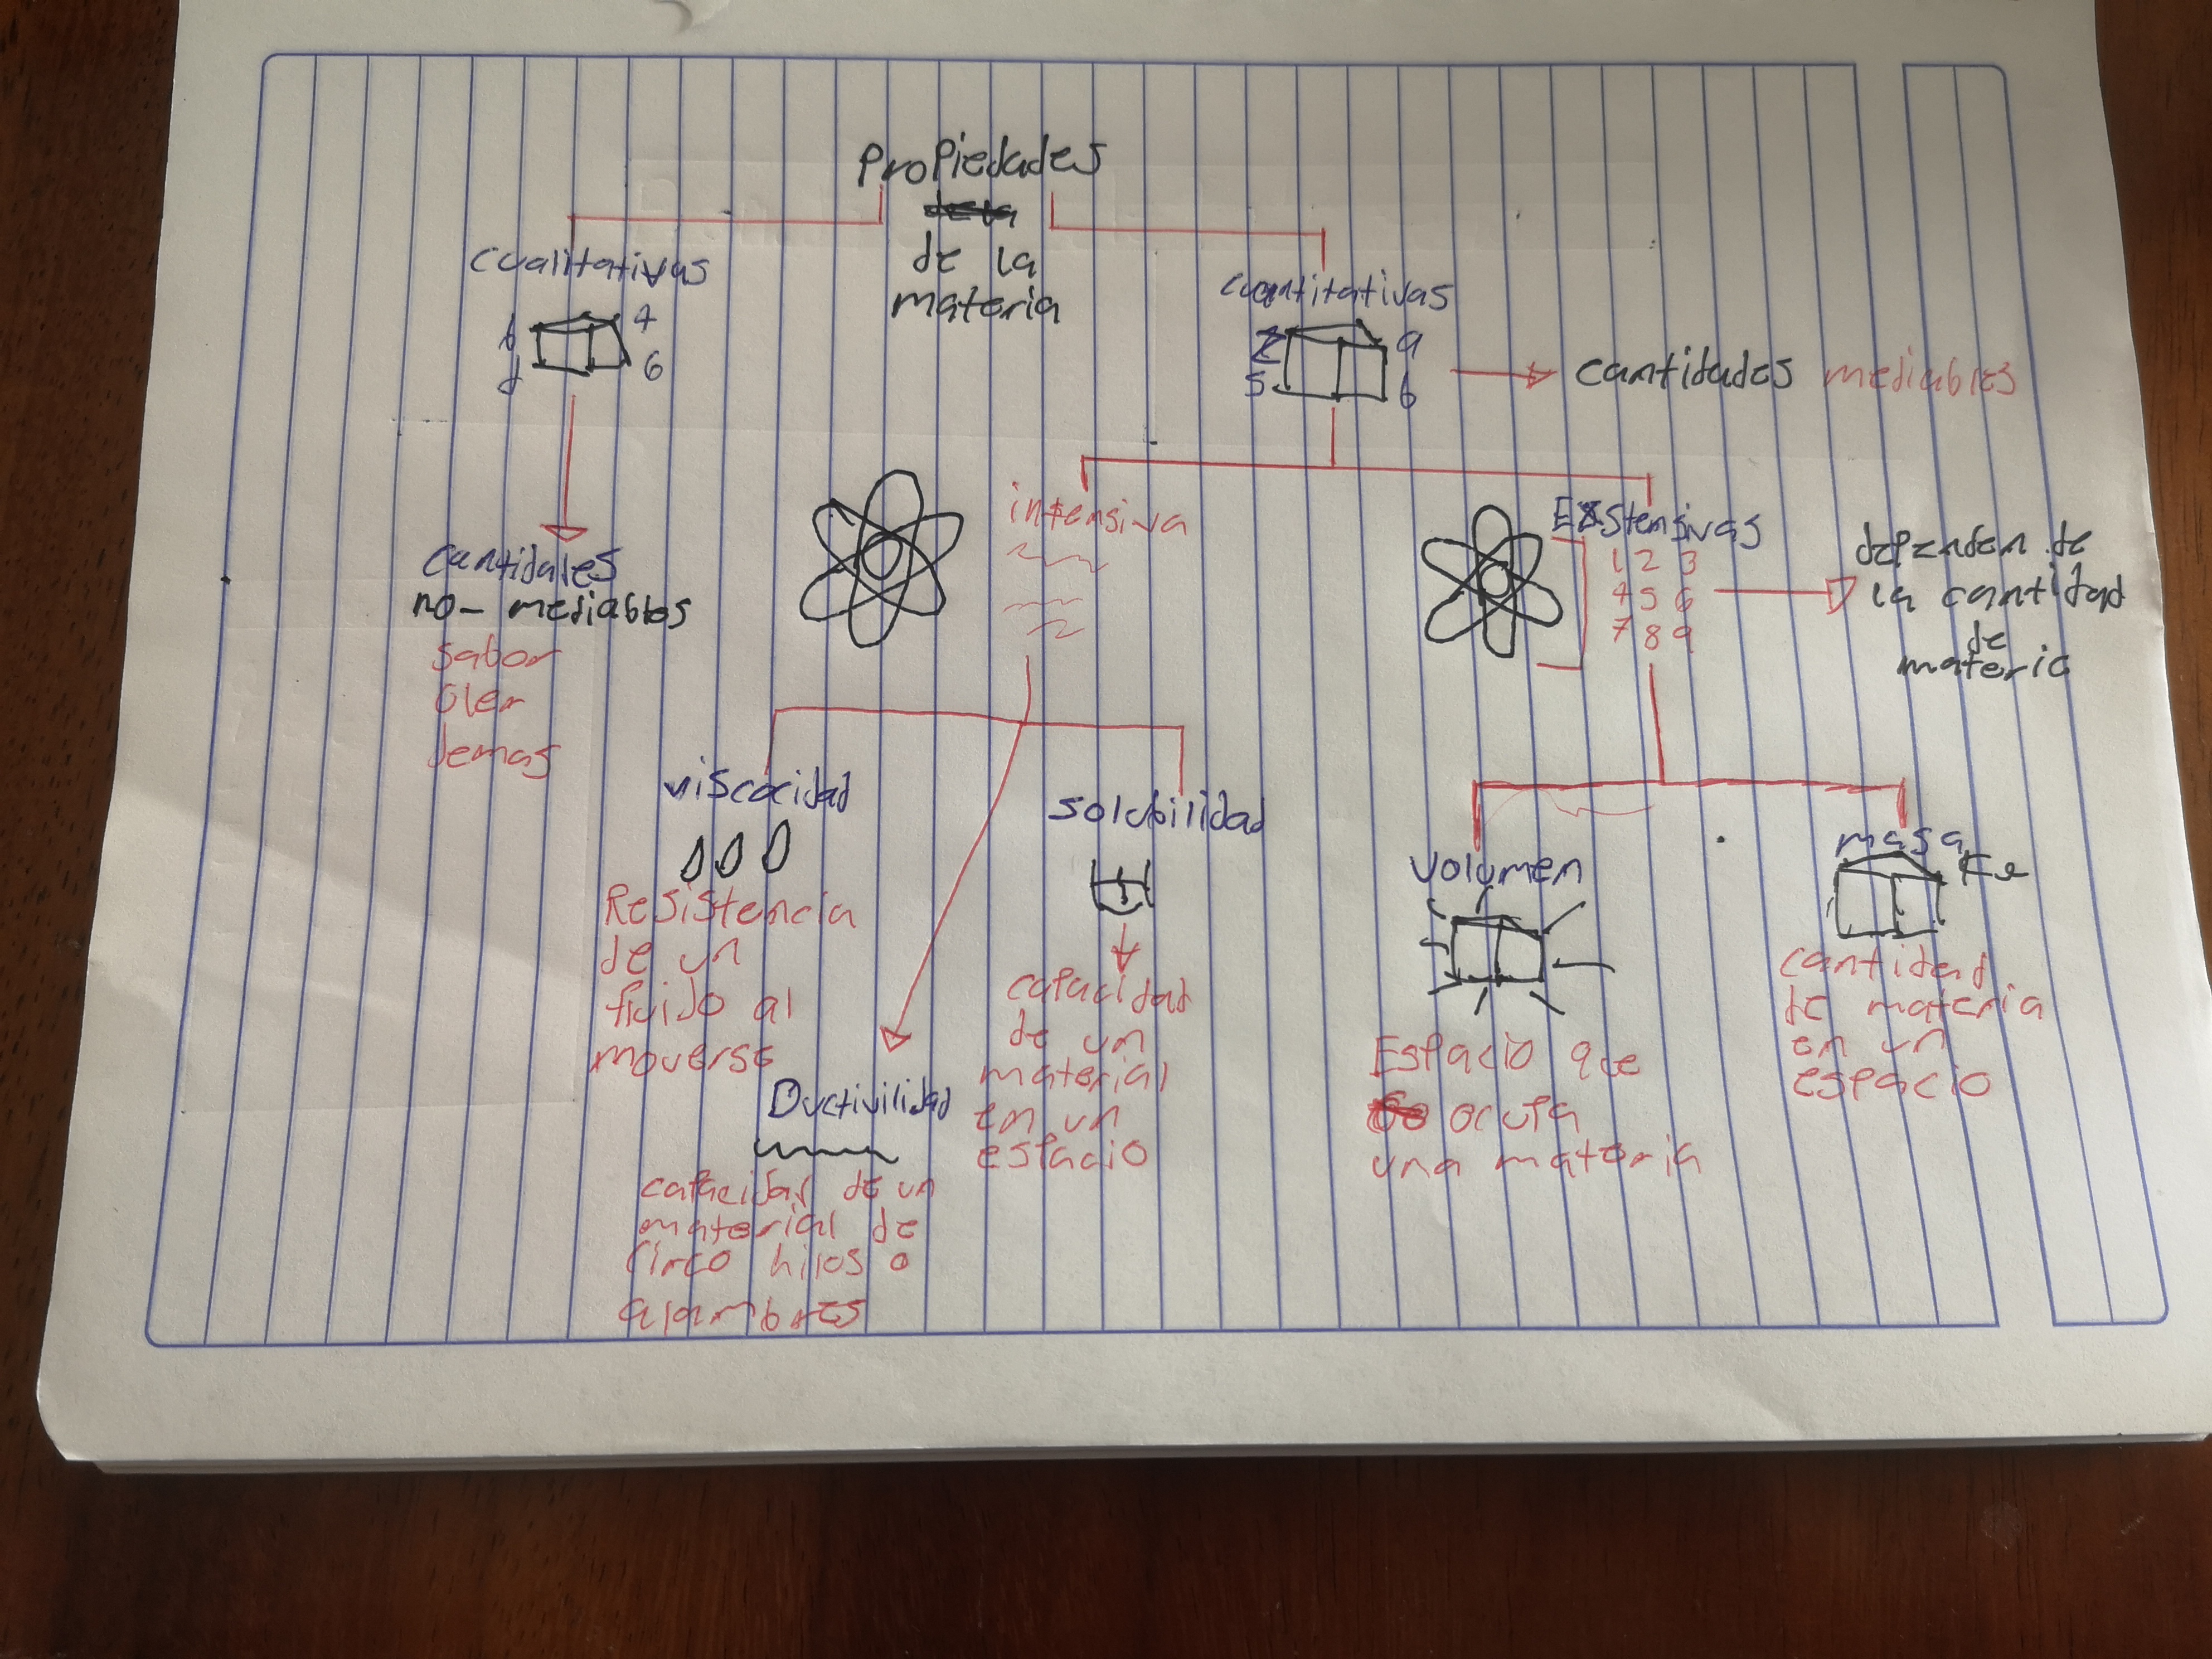 Propiedades
de la
materia
cualitativas
4
6
cantidades
no- mediables
sabor
oler
demas
cuantitativas
2 9
5 6
cantidades mediables
intensiva
Exstensivas
1 2 3
4 5 6
7 8 9
dependen de
la cantidad
de
materia
viscocidad
Resistencia
de un
fluido al
moverse
Ductivilidad
capacidad de un
material de
hilos o
alambres
solubilidad
capacidad
de un
material
en un
espacio
volumen
Espacio que
ocupa
una materia
masa
cantidad
de materia
en un
espacio